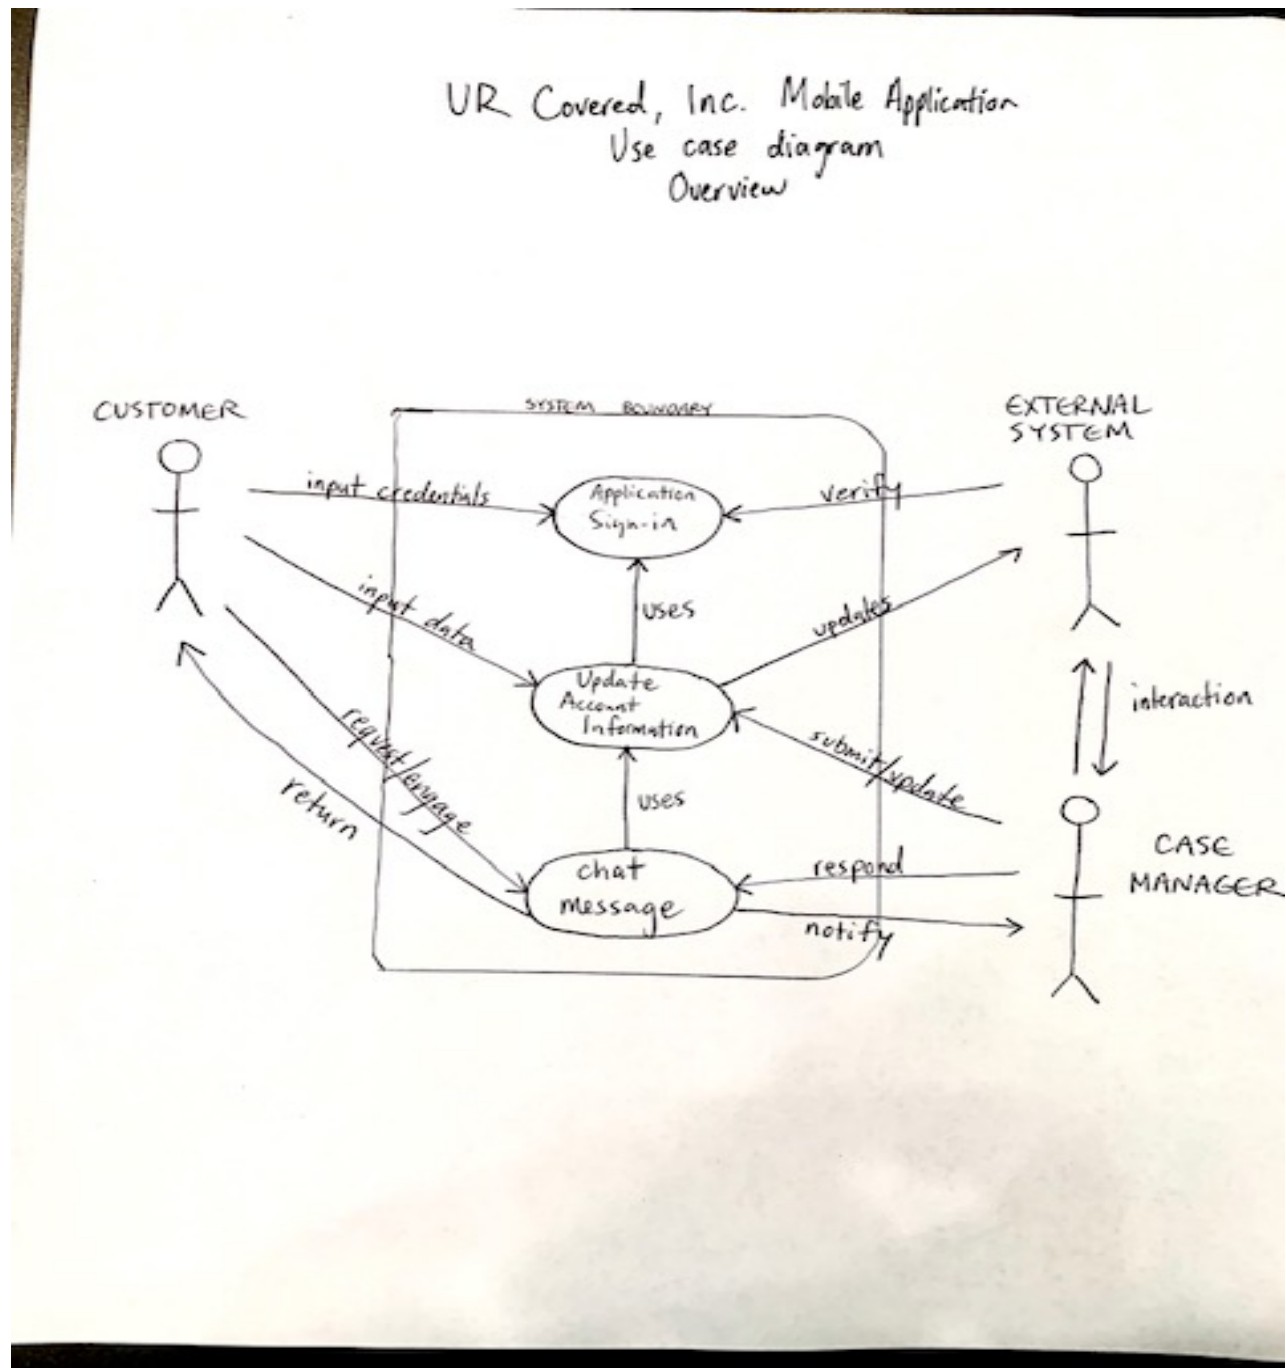 UR Covered, Inc. Mobile Application
Use case diagram
Overview
CUSTOMER
SYSTEM BOUNDARY
EXTERNAL
SYSTEM
input credentials
Application
Sign-in
verify
input data
uses
updates
Update
Account
Information
interaction
request/engage
return
submit/update
uses
chat
message
respond
notify
CASE
MANAGER